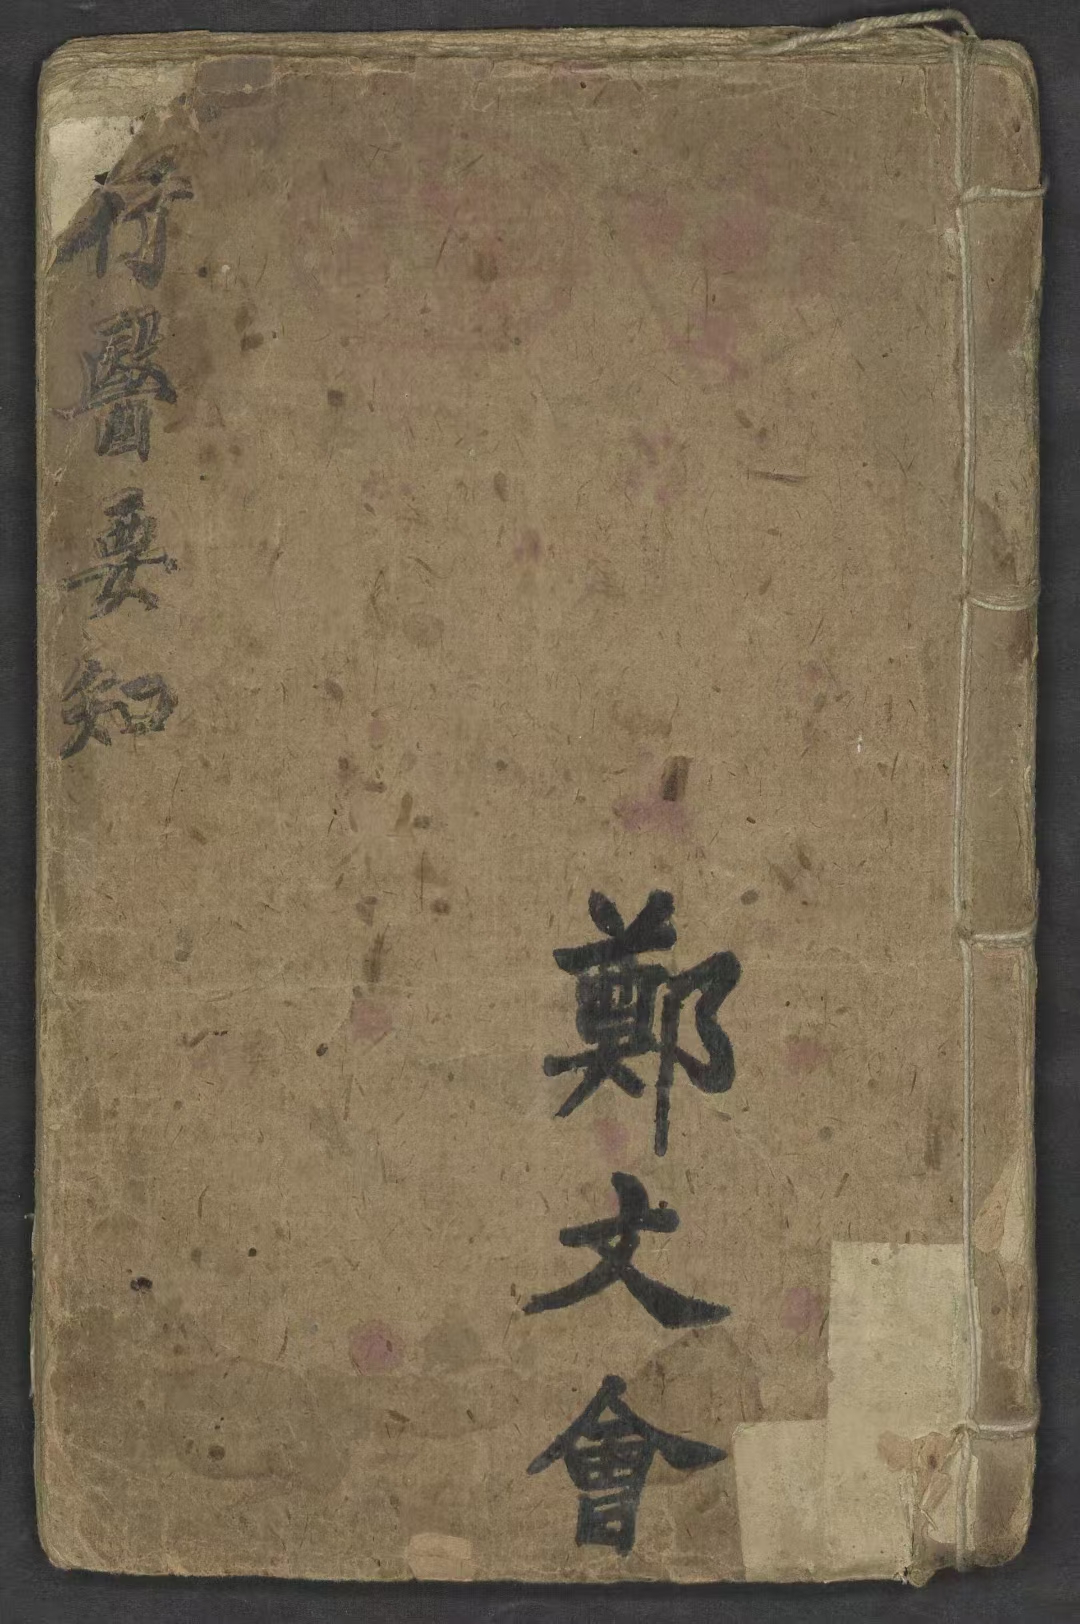 行醫要知
鄭文會